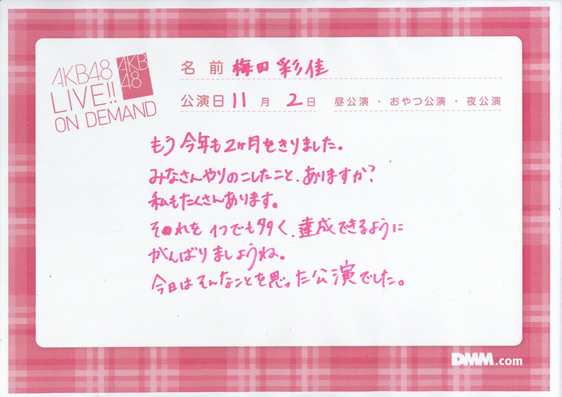 AKB48
LIVE!!
ON DEMAND
AKB
48
名前 梅田 彩佳
公演日 11月 2日 昼公演・おやつ公演・夜公演
もう今年も2ヶ月をきりました。
みなさんやりのこしたこと、ありますか?
私もたくさんあります。
それを1つでも多く、達成できるように
がんばりましょうね。
今日はそんなことを思った公演でした。
DMM.com